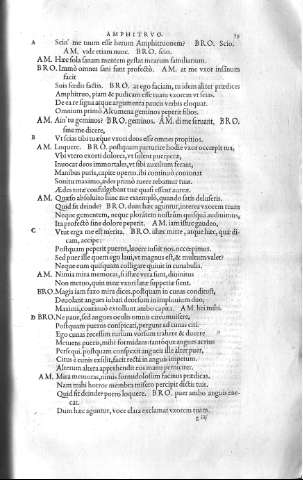 AMPHITRVO. 79
A Scin' me tuum esse herum Amphitruonem? BRO. Scio.
AM. vide etiam nunc. BRO. Scio.
AM. Hæc sola sanam mentem gestat mearum familiarium.
BRO. Immò omnes sani sunt profectò. AM. at me vxor insanum
facit
Suis fœdis factis. BRO. at ego faciam, tu idem aliter prædices
Amphitruo, piam & pudicam esse tuam vxorem vt scias.
De ea re signa atque argumenta paucis verbis eloquar.
Omnium primùm Alcumena geminos peperit filios.
AM. Ain' tu geminos? BRO. geminos. AM. di me seruant. BRO.
sine me dicere,
B Vt scias tibi tuæque vxori deos esse omnes propitios.
AM. Loquere. BRO. postquam parturire hodie vxor occœpit tua,
Vbi vtero exorti dolores, vt solent puerperæ,
Inuocat deos immortales, vt sibi auxilium ferant,
Manibus puris, capite operto. ibi continuò contonat
Sonitu maxumo, ædes primò ruere rebamur tuas.
Aedes totæ confulgebant tuæ quasi essent aureæ.
AM. Quæso absoluito hinc me extemplò, quando satis deluseris.
Quid fit deinde? BRO. dum hæc aguntur, interea vxorem tuam
Neque gementem, neque plorantem nostrûm quisquam audiuimus,
Ita profectò sine dolore peperit. AM. iam istuc gaudeo,
C Vtut erga me est merita. BRO. mitte istæc, atque hæc, quæ di-
cam, accipe.
Postquam peperit pueros, lauere iussit nos. occœpimus.
Sed puer ille quem ego laui, vt magnus est, & multùm valet?
Neque eum quisquam colligare quiuit in cunabulis.
AM. Nimia mira memoras, si istæc vera sunt, diuinitus
Non metuo, quin meæ vxori latæ suppetiæ sient.
BRO. Magis iam faxo mira dices. postquam in cunas conditu'st,
Deuolant angues iubati deorsum in impluuium duo,
Maximi. continuò extollunt ambo capita. AM. hei mihi.
D BRO. Ne paue, sed angues oculis omnis circumuisere,
Postquam pueros conspicati, pergunt ad cunas citi.
Ego cunas recessim rursum vorsum trahere & ducere,
Metuens pueris, mihi formidans. tantóque angues acrius
Persequi. postquam conspexit angueis ille alter puer,
Citus è cunis exsilit, facit recta in anguis impetum.
Alterum altera apprehendit eos manu perniciter.
AM. Mira memoras, nimis formidolosum facinus prædicas.
Nam mihi horror membra misero percipit dictis tuis.
Quid fit deinde? porro loquere. BRO. puer ambo anguis ene-
cat.
Dum hæc aguntur, voce clara exclamat vxorem tuam.
g iiij